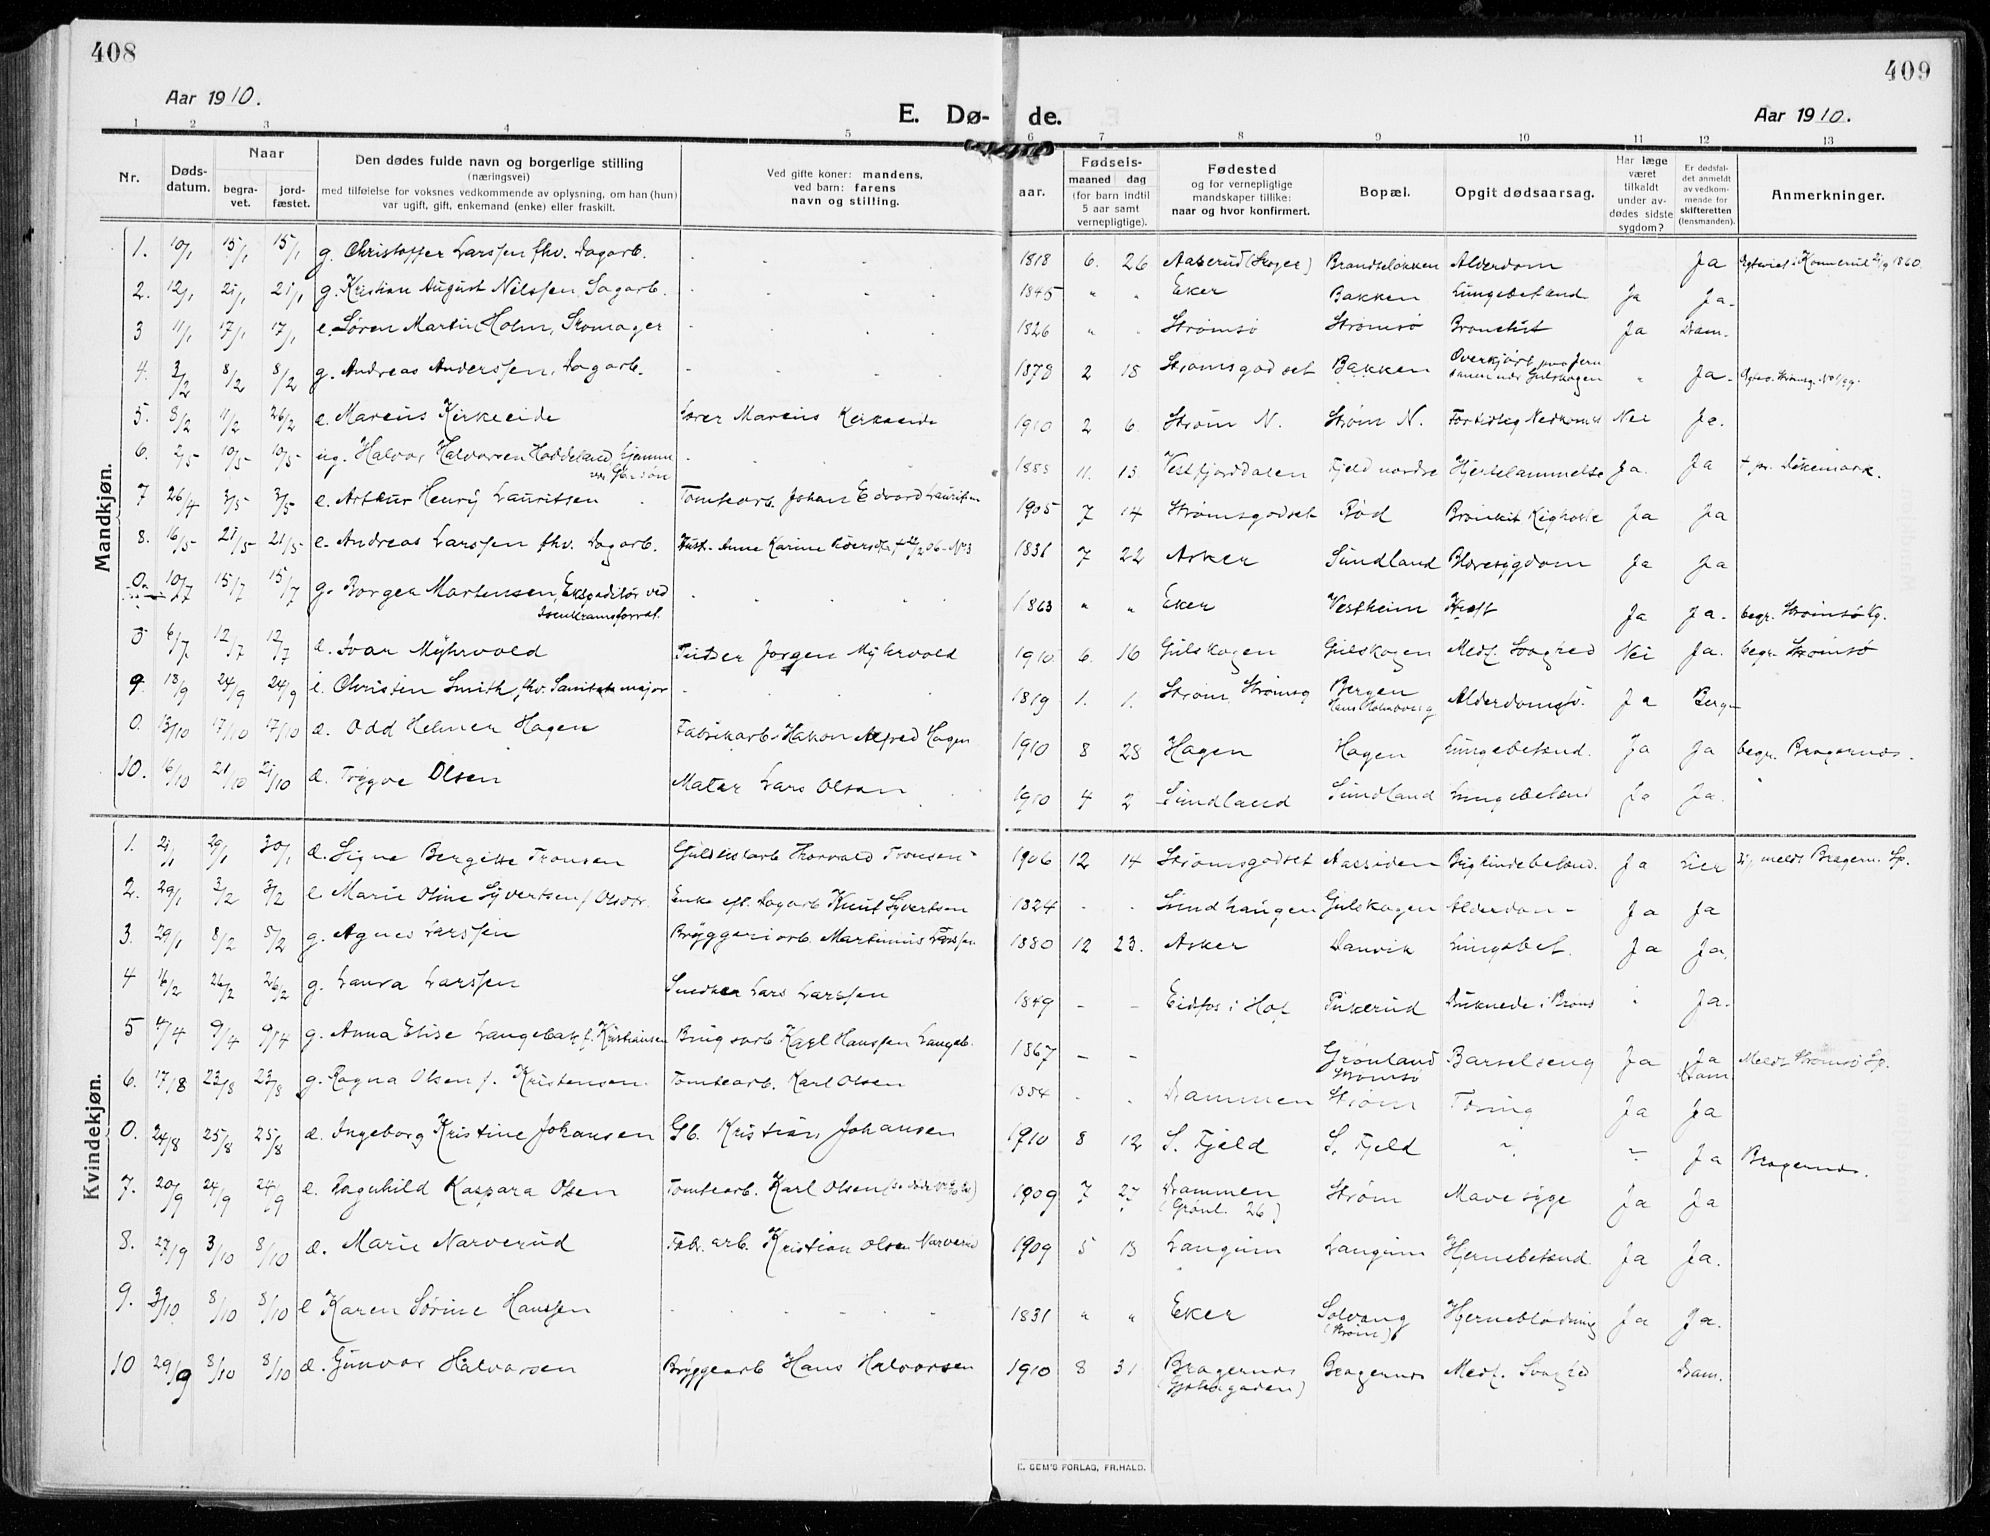 408
409
Aar 1910.
E. Dø- de.
Aar 1910.
1 2 3 4 5 6 7 8 9 10 11 12 13
Nr.
Døds-
datum.
Naar
begra-
vet.
jord-
fæstet.
Den dødes fulde navn og borgerlige stilling
(næringsvei)
med tilføielse for voksnes vedkommende av oplysning, om han (hun)
var ugift, gift, enkemand (enke) eller fraskilt.
Ved gifte koner: mandens,
ved barn: farens
navn og stilling.
aar.
Fødsels-
maaned dag
(for barn indtil
5 aar samt
vernepligtige).
Fødested
og for vernepligtige
mandskaper tillike:
naar og hvor konfirmert.
Bopæl.
Opgit dødsaarsag.
Har læge
været
tilkaldt
under av-
dødes sidste
sygdom?
Er dødsfal-
det anmeldt
av vedkom-
mende for
skifteretten
(lensmanden).
Anmerkninger.
Mandkjøn.
1. 10/1 15/1 15/1 g. Christoffer Larssen fhv. Dagarb. 1818 6. 26 Aaserud (Skoger) Brandseløkken Alderdom Ja
2. 12/1 21/1 21/1 g. Kristian August Nilssen, Dagarb. 1845 " " Eker Bakken Lungebetænd Ja Ja.
3 11/1 17/1 17/1 e. Søren Martin Holm, Skomager 1826 " " Strømsø Strømsø Bronchit Ja Dram.
4. 3/2 8/2 8/2 g. Andreas Anderssen, Dagarb. 1878 2 18 Strømsgodset Bakken Overkjørt paa Jern
banen ved Gulskogen " Ja.
5. 8/2 11/2 26/2 e. Marcus Kirkeeide Lærer Marcus Kirkeeide 1910 2 6. Strøm N. Strøm N. Fortidlig Nedkomst Nei Ja.
6. 2/5 10/5 10/5 ug. Halvor Halvorsen Hoddeland, hjemme
1888 11. 13. Vestfjorddalen Fjeld nordre Hjertelammelse Ja. Ja Dikemark.
7 26/4 3/5 3/5 e. Arthur Henry Lauritsen Tomtearb. Johan Edvard Lauritsen 1905 7 14 Strømsgodset Rød Bronkit Kighoste Ja Ja
8. 16/5 21/5 21/5 e. Andreas Larssen fhv. Dagarb. Hust. Anne Karine 1831 7 22 Asker Sundland Blæresygdom Ja Ja
0. 10/7 15/7 15/7 g. Borger Martensen, Ekspeditør ved
Isenkramsforret. 1863 " " Eker Vestheim Kræft Ja Ja. begr. Strømsø Kg.
5 6/7 12/7 12/7 e. Ivar Myhrvold Snedker Jørgen Myhrvold 1910 6. 16 Gulskogen Gulskogen Medf. Svaghed Nei Ja. begr. Strømsø
9. 18/9 24/9 24/9 e. Christen Smith, fhv. Sanitetsmajor 1819 1. 1. Strøm, Strømsg Bergen
Alderdomssv. Ja Berg-
0. 13/10 17/10 17/10 æ. Odd Helmer Hagen Fabrikarb. Hakon Alfred Hagen 1910 8 28 Hagen Hagen Lungebetænd. Ja Ja begr. Bragernes.
10. 16/10 21/10 21/10 æ. Trygve Olsen Matar Lars Olsen 1910 4 2 Sundland Sundland Lungebetænd Ja Ja.
Kvindekjøn.
1. 21/1 29/1 30/1 æ. Signe Bergitte Tronsen Thorvald Tronsen 1906 12 14 Strømsgodset Aassiden Ja Lier meldt Bragern. Sp.
2. 29/1 3/2 3/2 e Marie Oline Syvertsen f. Olsdtr. Enke eft. Dagarb Knut Syvertsen 1824 - - Sundhaugen Gulskogen Alderdom - Ja Ja
3. 29/1 8/2 8/2 g. Agnes Larssen Bryggeriarb. Martinius Larssen 1880 12 23. Asker Danvik Lungebet. Ja Ja.
4 16/2 26/2 26/2 g. Laura Larssen Snedker Lars Larssen 1849 - - Eidfos i Hof Pukerud Druknede i Brønd Ja.
5 4/4 9/4 9/4 g. Anna Elise Langebak f. Kristiansen Brugsarb Karl Hanssen Langeb. 1867 - - Grønland
Strømsø Barselseng Ja Ja
Dram Meldt Strømsø Sp.
6. 17/8 23/8 23/8 g. Ragna Olsen f. Kristensen. Tomtearb. Karl Olsen 1884 - - Drammen Strøm Tæring Ja Ja
0. 24/8 25/8 25/8 æ. Ingeborg Kristine Johansen Gb. Kristian Johansen 1910 8 12 S. Fjeld S. Fjeld " " Ja Bragernes.
7. 20/9 24/9 24/9 e. Ragnhild Kaspara Olsen Tomtearb. Karl Olsen 1909 7 27 Drammen
(Grønl. 26) Strøm Mavesyge Ja Ja
8. 27/9 3/10 8/10 æ. Marie Narverud Fabr. arb. Kristian Olsen Narverud 1909 5 13 Langum Langum Hjernebetænd. Ja Ja.
9. 3/10 8/10 8/10 e Karen Sørine Hanssen 1831 " " Eker Solvang
(Strøm) Hjerneblødning Ja Ja.
10 29/9 8/10 8/10 æ. Gunvor Halvorsen Bryggearb Hans Halvorsen 1910 8 31 Bragernes
Bragernes Medf. Svaghed Dram.
E. SEM'S FORLAG, FR.HALD.